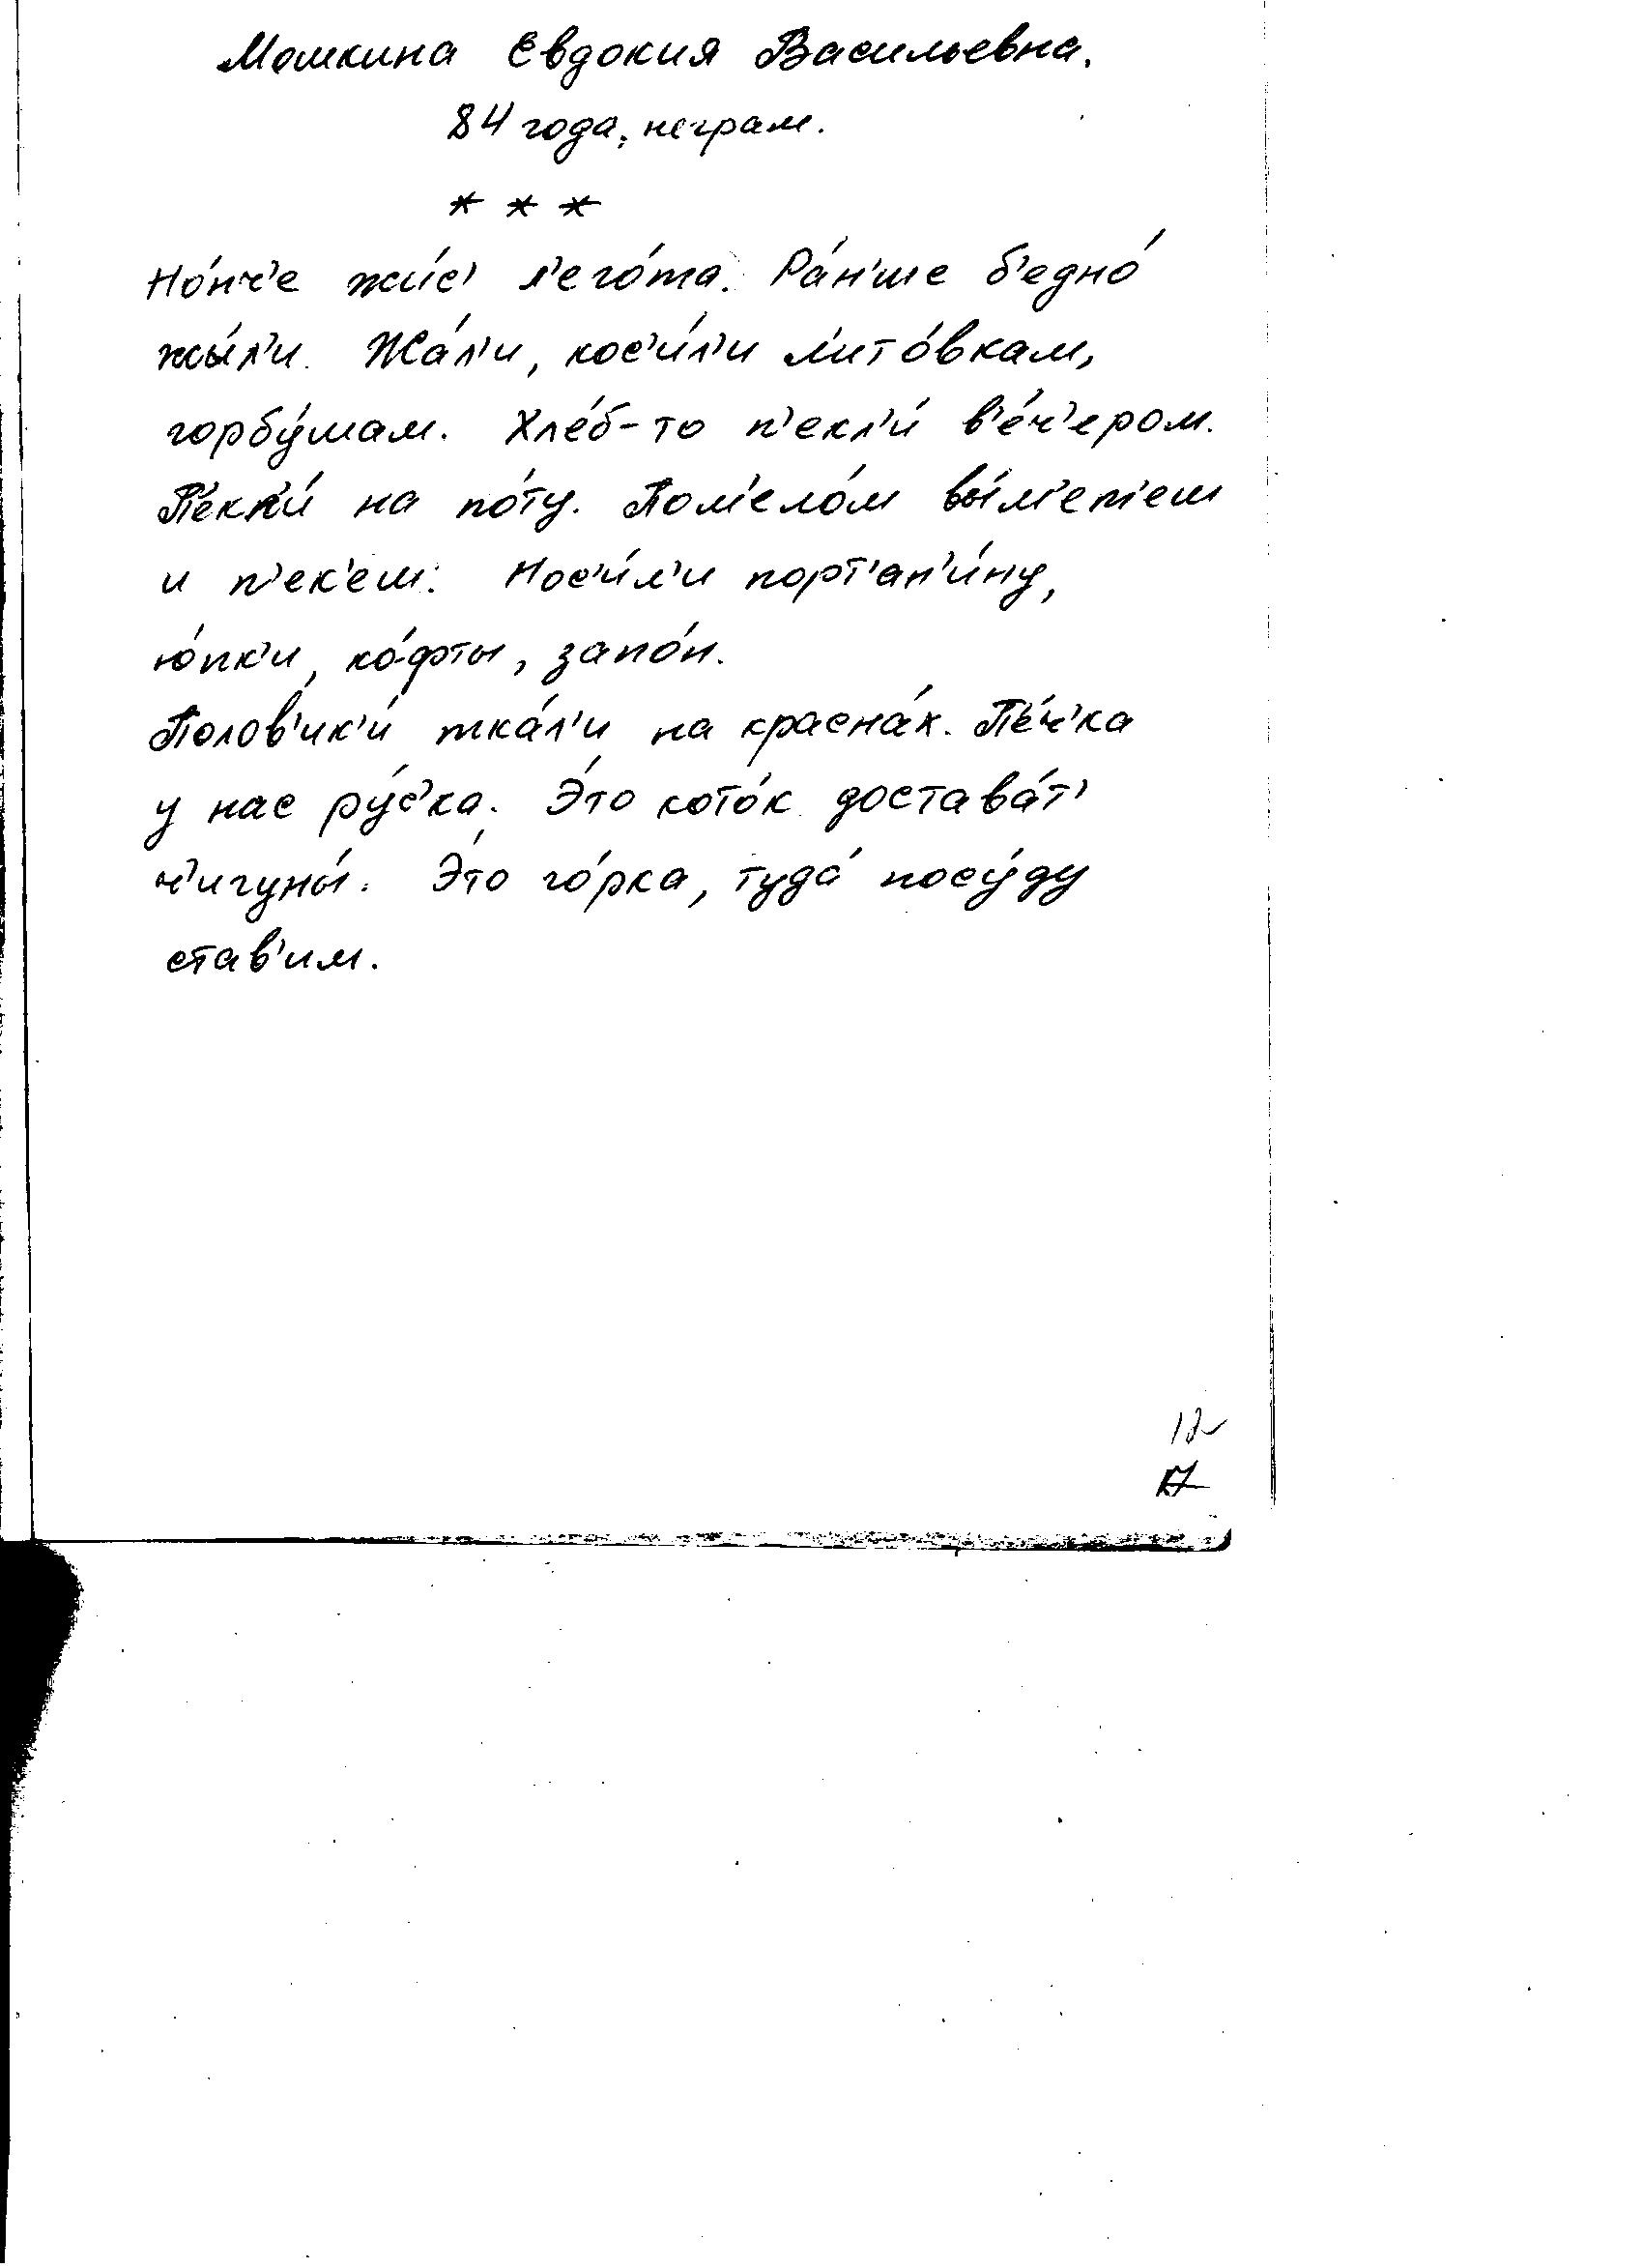 Мошкина Евдокия Васильевна.
84 года, неграм.
* * *
Но́нч'е жи́с' л'его́та. Ра́н'ше б'едно́
жы́л'и. Жа́л'и, кос'и́л'и л'ито́вкам,
горбу́шам. Хле́б-то п'екл'и́ в'е́ч'ером.
П'екл'и́ на по́ту. Пом'ело́м вы́м'ет'еш
и п'ек'еш. Нос'и́л'и порт'ан'и́ну,
ю́пк'и, ко́фты, запо́н.
Полов'ик'и́ тка́л'и на красна́х. П'е́ч'ка
у нас ру́с'ка. Э́то кото́к достава́т'
ч'игуны́. Э́то го́рка, туда́ посу́ду
став'им.
12
17